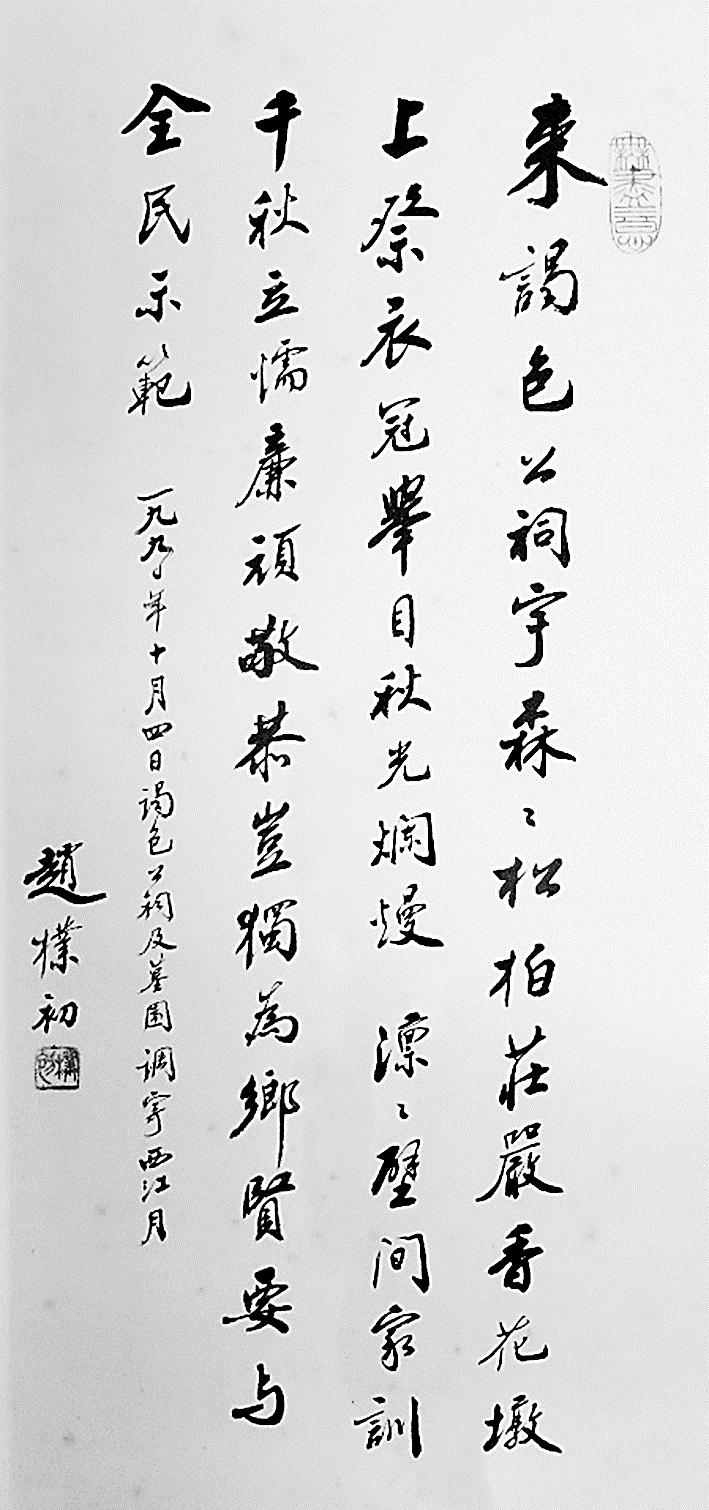 來謁包公祠宇森〻松柏莊嚴香花墩
上祭衣冠舉目秋光爛熳 凛〻壁间家訓
千秋立懦廉頑敬恭豈獨為鄉賢要与
全民示範 一九九〇年十月四日謁包公祠及墓園調寄西江月
趙樸初